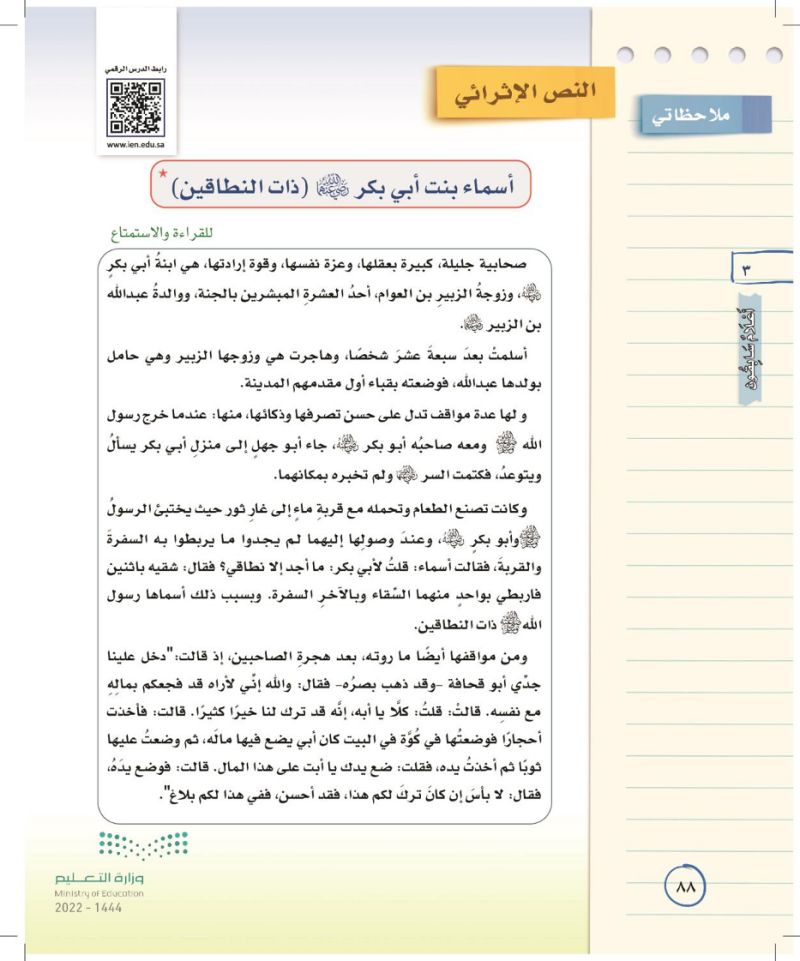 رابط الدرس الرقمي
www.ien.edu.sa
النص الإثرائي
ملاحظاتي
أسماء بنت أبي بكر رضي الله عنها (ذات النطاقين) *
للقراءة والاستمتاع
صحابية جليلة، كبيرة بعقلها، وعزة نفسها، وقوة إرادتها، هي ابنةُ أبي بكرٍ
، وزوجةُ الزبيرِ بن العوام، أحدُ العشرةِ المبشرين بالجنة، ووالدةُ عبدالله
بن الزبير .
أسلمتْ بعدَ سبعةَ عشرَ شخصًا، وهاجرت هي وزوجها الزبير وهي حامل
بولدها عبدالله، فوضعته بقباء أول مقدمهم المدينة.
و لها عدة مواقف تدل على حسن تصرفها وذكائها، منها: عندما خرج رسول
الله ﷺ ومعه صاحبُه أبو بكر ، جاء أبو جهلٍ إلى منزلِ أبي بكر يسألُ
ويتوعدُ، فكتمت السر ولم تخبره بمكانهما.
وكانت تصنع الطعام وتحمله مع قربةِ ماءٍ إلى غارِ ثور حيث يختبئ الرسولُ
ﷺ وأبو بكرٍ ، وعندَ وصولِها إليهما لم يجدوا ما يربطوا به السفرةَ
والقربةَ، فقالت أسماء: قلتُ لأبي بكر: ما أجد إلا نطاقي؟ فقال: شقيه باثنين
فاربطي بواحدٍ منهما السِّقاء وبالآخرِ السفرة. وبسبب ذلك أسماها رسول
الله ﷺ ذات النطاقين.
ومن مواقفها أيضًا ما روته، بعد هجرةِ الصاحبين، إذ قالت:"دخل علينا
جدِّي أبو قحافة -وقد ذهب بصرُه- فقال: والله إنِّي لأراه قد فجعكم بمالِهِ
مع نفسِه. قالتْ: قلتُ: كلَّا يا أبه، إنَّه قد ترك لنا خيرًا كثيرًا. قالت: فأخذت
أحجارًا فوضعتُها في كُوَّة في البيت كان أبي يضع فيها مالَه، ثم وضعتُ عليها
ثوبًا ثم أخذتُ يده، فقلت: ضع يدك يا أبت على هذا المال. قالت: فوضع يدَهُ،
فقال: لا بأسَ إن كانَ تركَ لكم هذا، فقد أحسن، ففي هذا لكم بلاغ".
٣
أعلام سابقون
وزارة التعـــليم
Ministry of Education
2022 - 1444
٨٨